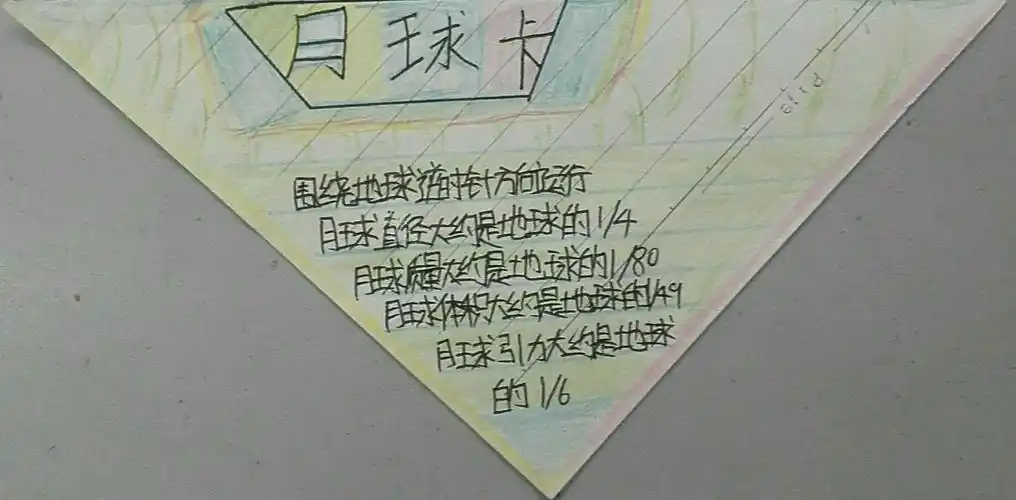 月球卡
围绕地球逆时针方向运行
月球直径大约是地球的1/4
月球质量大约是地球的1/80
月球体积大约是地球的1/49
月球引力大约是地球
的1/6